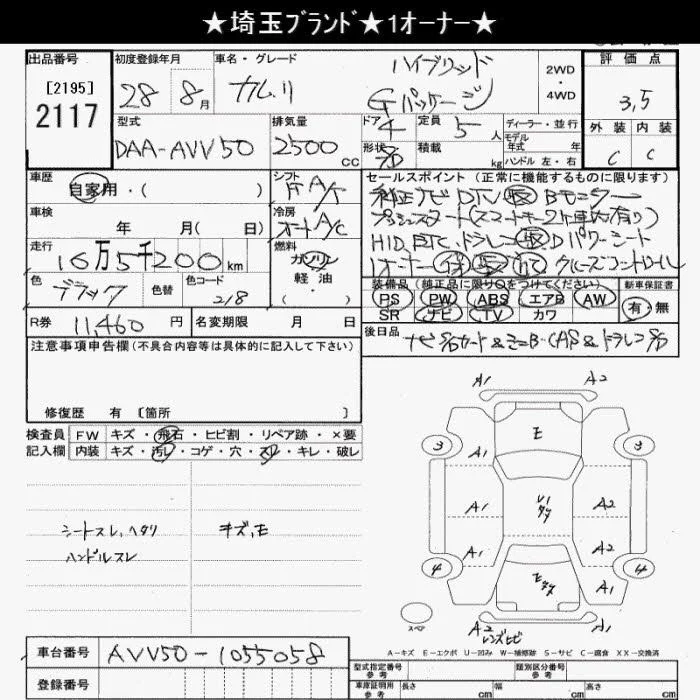 ★埼玉ﾌﾞﾗﾝﾄﾞ★1オーナー★
出品番号 初度登録年月 車名・グレード 2WD・4WD 評価点
[2195]
2117
28 8月 カムリ ハイブリッド Gパッケージ 3.5
型式 排気量 ドア 定員 5人 ディーラー・並行 外装 内装
DAA-AVV50 2500cc 4 形状 積載 kg モデル年式 年式 ハンドル 左・右 C C
車歴 シフト セールスポイント (正常に機能するものに限ります)
自家用・( ) F A/T 純正ナビ DTV Bモニター
車検 冷房 プッシュスタート(スマートキー2ケ車内有り)
年 月( 日) オートA/C HID、ETC、ドラレコ Dパワーシート
走行 燃料 1オーナー クルーズコントロール
16万5千200km ガソリン
軽油
( )
色 色替 色コード 装備品 (純正品に限り○をつけてください) 新車保証書
ブラック 218 PS PW ABS エアB AW 有・無
SR ナビ TV カワ
R券 11,460円 名変期限 月 日 後日品
ナビSDカード&
注意事項申告欄 (不具合内容等は具体的に記入して下さい)
修復歴 有 [箇所 ]
検査員 FW キズ・飛石・ヒビ割・リペア跡・×要
記入欄 内装 キズ・汚レ・コゲ・穴・スレ・キレ・破レ
シートスレ、ヘタリ キズ、E
ハンドルスレ
A1 A2
E
3 3
A1
A1 U1 A2
A1 A2
4 4
A1
スペア A2 A1
レンズヒビ
A-キズ E-エクボ U-凹み W-補修跡 S-サビ C-腐食 XX-交換済
車台番号 AVV50-1055058
型式指定番号 類別区分番号
登録番号 車庫証明用参考 長さ cm 幅 cm 高さ cm